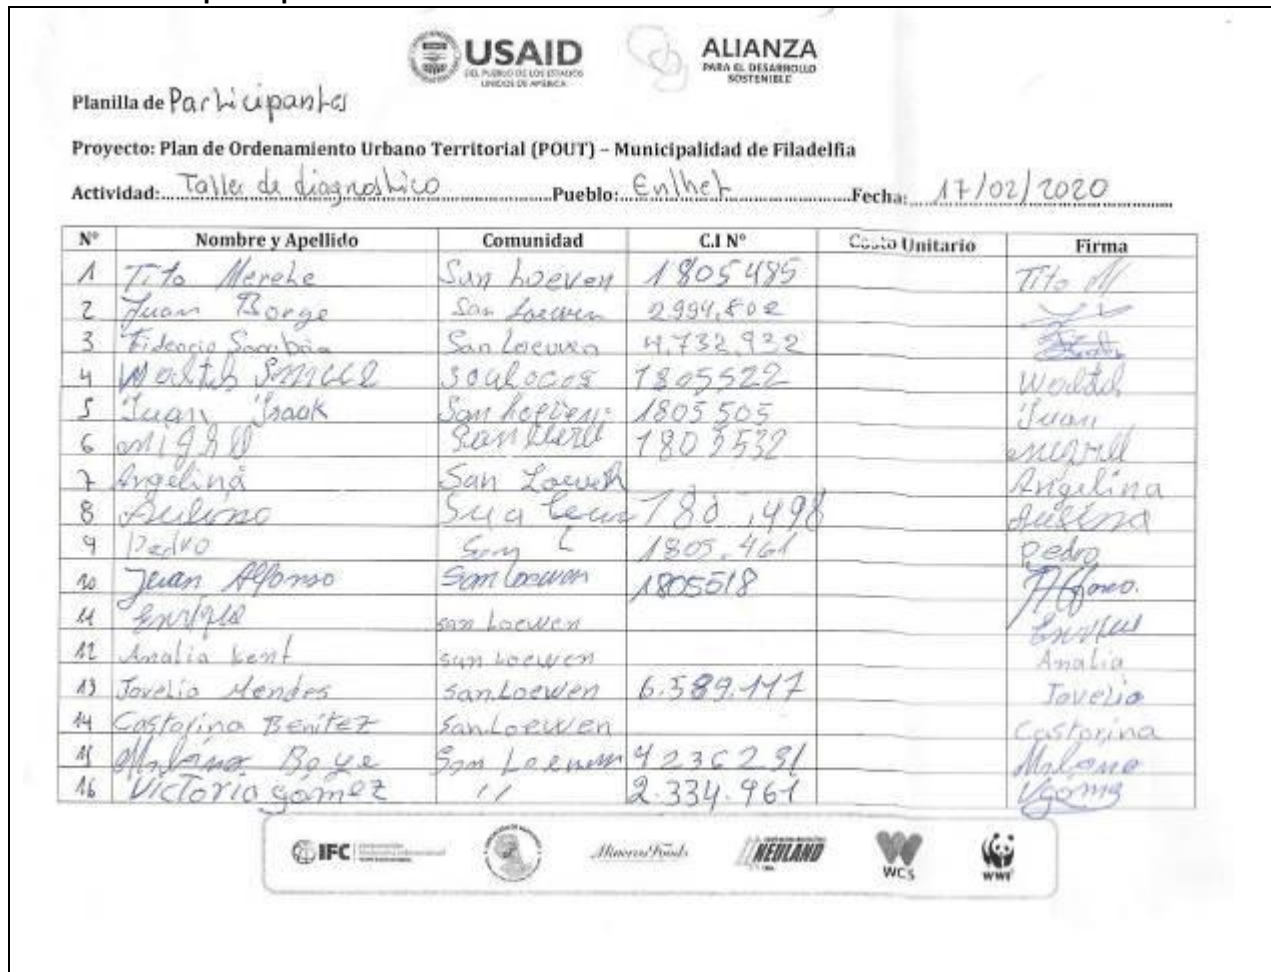 USAID ALIANZA
DEL PUEBLO DE LOS ESTADOS UNIDOS DE AMÉRICA PARA EL DESARROLLO SOSTENIBLE
Planilla de Participantes
Proyecto: Plan de Ordenamiento Urbano Territorial (POUT) – Municipalidad de Filadelfia
Actividad: Taller de diagnostico Pueblo: Enlhet Fecha: 17/02/2020
Nº Nombre y Apellido Comunidad C.I Nº Costo Unitario Firma
1 Tito San Loeven 1805485 Tito M
2 Juan Borge San Loewen 2.994.802
3 San Loewen 4.732.922
4 1805522
5 Juan Isaak San 1805505 Juan
6 San
7 Angelina San Loeweh Angelina
8 498
9 Pedro San L 1805.461 Pedro
10 Juan Alfonso San Loewen 1805518
11 san Loewen
12 Analia Kent san Loewen Analia
13 Jovelio Mendes san.Loewen 6.589.117 Jovelio
14 Castorina Benitez San.Loewen Castorina
15 San Loewen 4236291
16 Victoria gómez '' 2.334.961 Vgomz
IFC Minerva Foods NEULAND WCS WWF